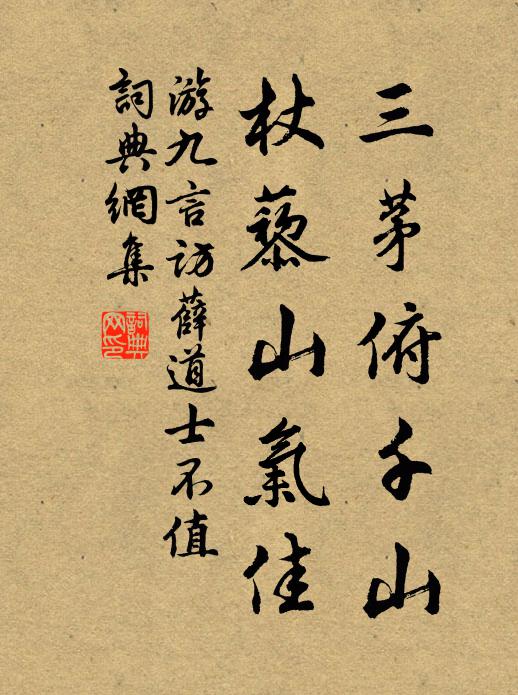 三茅俯千山
杖藜山氣佳
游九言訪薛道士不值
詞典網集
詞典
网印